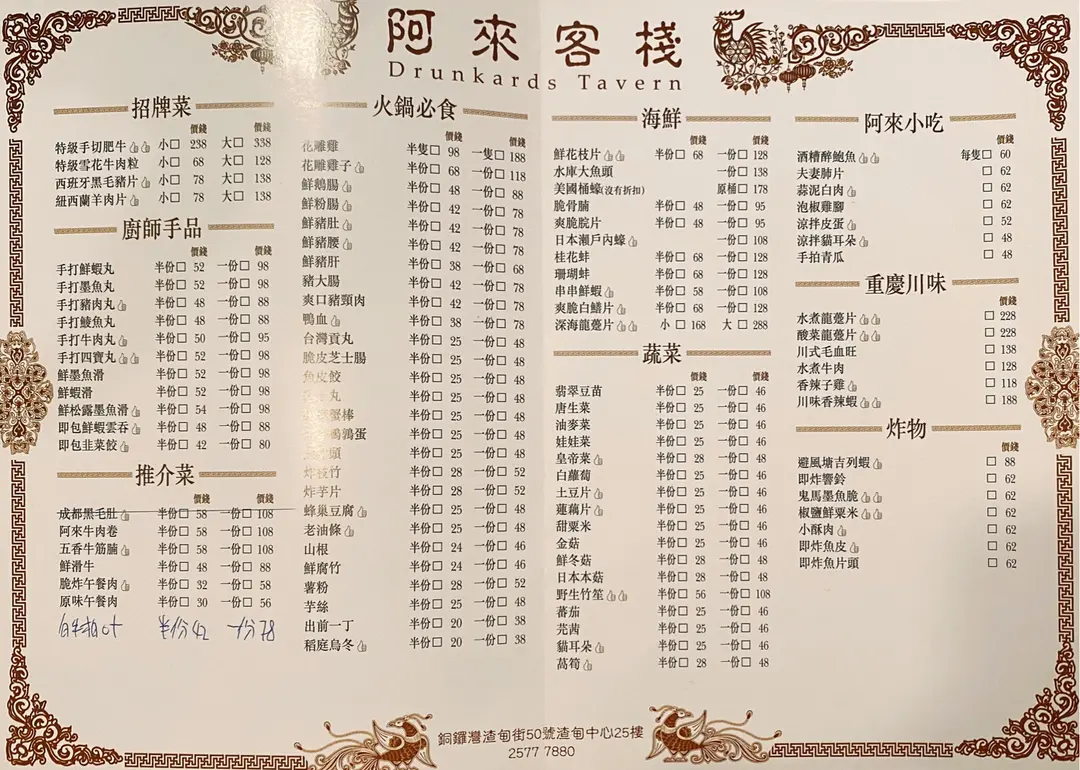 阿來客棧
Drunkards Tavern
招牌菜
價錢 價錢
特級手切肥牛 小□ 238 大□ 338
特級雪花牛肉粒 小□ 68 大□ 128
西班牙黑毛豬片 小□ 78 大□ 138
紐西蘭羊肉片 小□ 78 大□ 138
廚師手品
價錢 價錢
手打鮮蝦丸 半份□ 52 一份□ 98
手打墨魚丸 半份□ 52 一份□ 98
手打豬肉丸 半份□ 48 一份□ 88
手打鯪魚丸 半份□ 48 一份□ 88
手打牛肉丸 半份□ 50 一份□ 95
手打四寶丸 半份□ 52 一份□ 98
鮮墨魚滑 半份□ 52 一份□ 98
鮮蝦滑 半份□ 52 一份□ 98
鮮松露墨魚滑 半份□ 54 一份□ 98
即包鮮蝦雲吞 半份□ 48 一份□ 88
即包韭菜餃 半份□ 42 一份□ 80
推介菜
價錢 價錢
成都黑毛肚 半份□ 58 一份□ 108
阿來牛肉卷 半份□ 58 一份□ 108
五香牛筋腩 半份□ 58 一份□ 108
鮮滑牛 半份□ 48 一份□ 88
脆炸午餐肉 半份□ 32 一份□ 58
原味午餐肉 半份□ 30 一份□ 56
半份 42 一份 78
火鍋必食
價錢 價錢
花雕雞 半隻□ 98 一隻□ 188
花雕雞子 半份□ 68 一份□ 118
鮮鵝腸 半份□ 48 一份□ 88
鮮粉腸 半份□ 42 一份□ 78
鮮豬肚 半份□ 42 一份□ 78
鮮豬腰 半份□ 42 一份□ 78
鮮豬肝 半份□ 38 一份□ 68
豬大腸 半份□ 42 一份□ 78
爽口豬頸肉 半份□ 42 一份□ 78
鴨血 半份□ 38 一份□ 78
台灣貢丸 半份□ 25 一份□ 48
脆皮芝士腸 半份□ 25 一份□ 48
魚皮餃 半份□ 25 一份□ 48
丸 半份□ 25 一份□ 48
蟹棒 半份□ 25 一份□ 48
鵪鶉蛋 半份□ 25 一份□ 48
頭 半份□ 25 一份□ 48
炸枝竹 半份□ 28 一份□ 52
炸芋片 半份□ 28 一份□ 52
蜂巢豆腐 半份□ 25 一份□ 48
老油條 半份□ 25 一份□ 48
山根 半份□ 24 一份□ 46
鮮腐竹 半份□ 24 一份□ 46
薯粉 半份□ 28 一份□ 52
芋絲 半份□ 25 一份□ 48
出前一丁 半份□ 20 一份□ 38
稻庭烏冬 半份□ 20 一份□ 38
海鮮
價錢 價錢
鮮花枝片 半份□ 68 一份□ 128
水庫大魚頭 一份□ 138
美國桶蠔(沒有折扣) 原桶□ 178
脆骨腩 半份□ 48 一份□ 95
爽脆脘片 半份□ 48 一份□ 95
日本瀨戶內蠔 一份□ 108
桂花蚌 半份□ 68 一份□ 128
珊瑚蚌 半份□ 68 一份□ 128
串串鮮蝦 半份□ 58 一份□ 108
爽脆白鱔片 半份□ 68 一份□ 128
深海龍躉片 小□ 168 大□ 288
蔬菜
價錢 價錢
翡翠豆苗 半份□ 25 一份□ 46
唐生菜 半份□ 25 一份□ 46
油麥菜 半份□ 25 一份□ 46
娃娃菜 半份□ 25 一份□ 46
皇帝菜 半份□ 28 一份□ 48
白蘿蔔 半份□ 25 一份□ 46
土豆片 半份□ 25 一份□ 46
蓮藕片 半份□ 25 一份□ 46
甜粟米 半份□ 25 一份□ 46
金菇 半份□ 25 一份□ 46
鮮冬菇 半份□ 28 一份□ 48
日本本菇 半份□ 28 一份□ 48
野生竹笙 半份□ 56 一份□ 108
蕃茄 半份□ 25 一份□ 46
芫茜 半份□ 25 一份□ 46
貓耳朵 半份□ 25 一份□ 46
萵筍 半份□ 28 一份□ 48
阿來小吃
價錢
酒糟醉鮑魚 每隻□ 60
夫妻肺片 □ 62
蒜泥白肉 □ 62
泡椒雞腳 □ 62
涼拌皮蛋 □ 52
涼拌貓耳朵 □ 48
手拍青瓜 □ 48
重慶川味
價錢
水煮龍躉片 □ 228
酸菜龍躉片 □ 228
川式毛血旺 □ 138
水煮牛肉 □ 128
香辣子雞 □ 118
川味香辣蝦 □ 188
炸物
價錢
避風塘吉列蝦 □ 88
即炸響鈴 □ 62
鬼馬墨魚脆 □ 62
椒鹽鮮粟米 □ 62
小酥肉 □ 62
即炸魚皮 □ 62
即炸魚片頭 □ 62
銅鑼灣渣甸街50號渣甸中心25樓
2577 7880